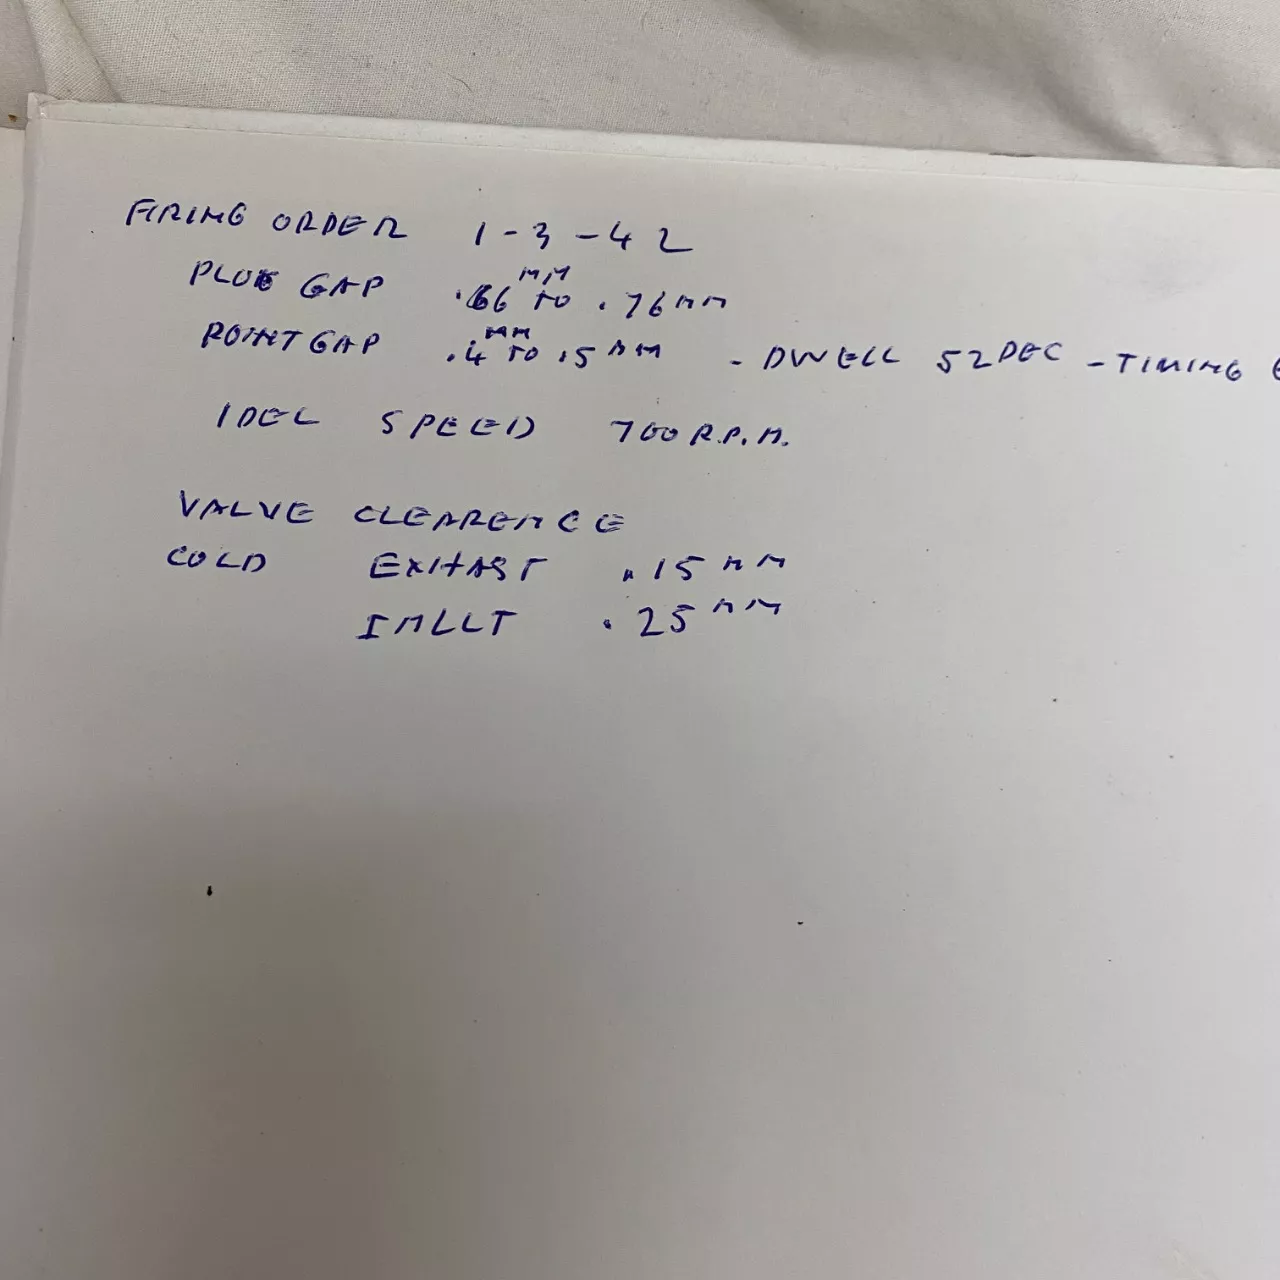 FIRING ORDER 1-3-4 2
PLUG GAP .66 MM TO .76 MM
POINT GAP .4 MM TO .5 MM - DWELL 52 DEG - TIMING
IDEL SPEED 700 R.P.M.
VALVE CLEARENCE
COLD EXHAST .15 MM
INLLT .25 MM